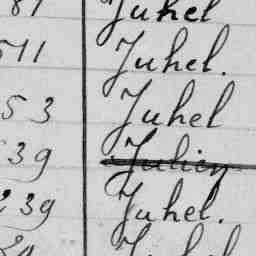 81 Juhel
511 Juhel.
53 Juhel
39 Julien
239 Juhel.